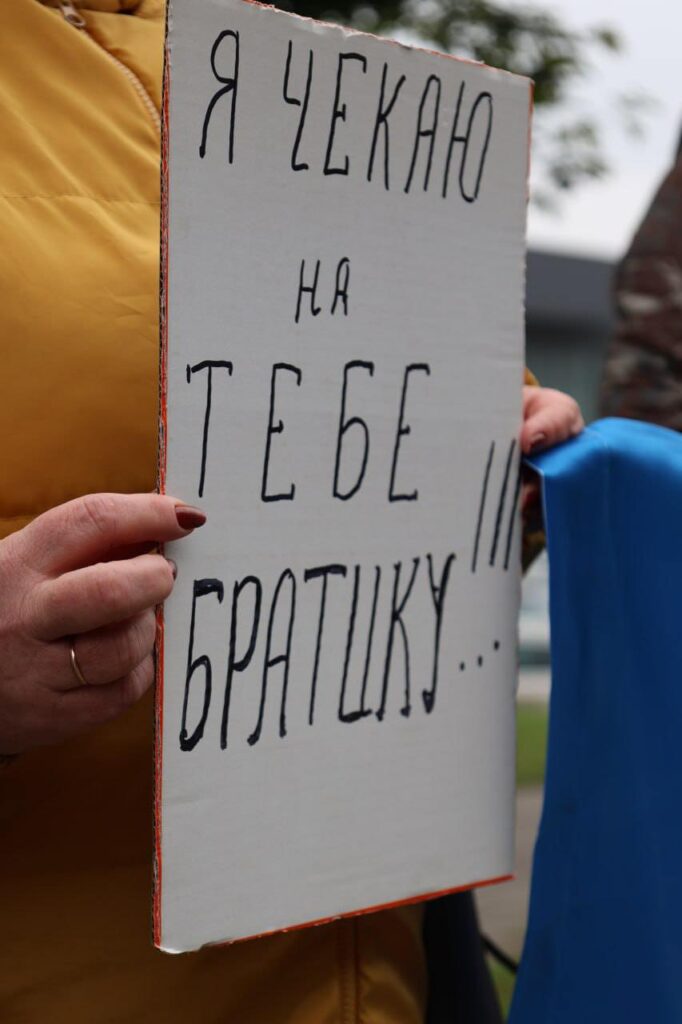 Я ЧЕКАЮ
НА
ТЕБЕ
БРАТИКУ...!!!